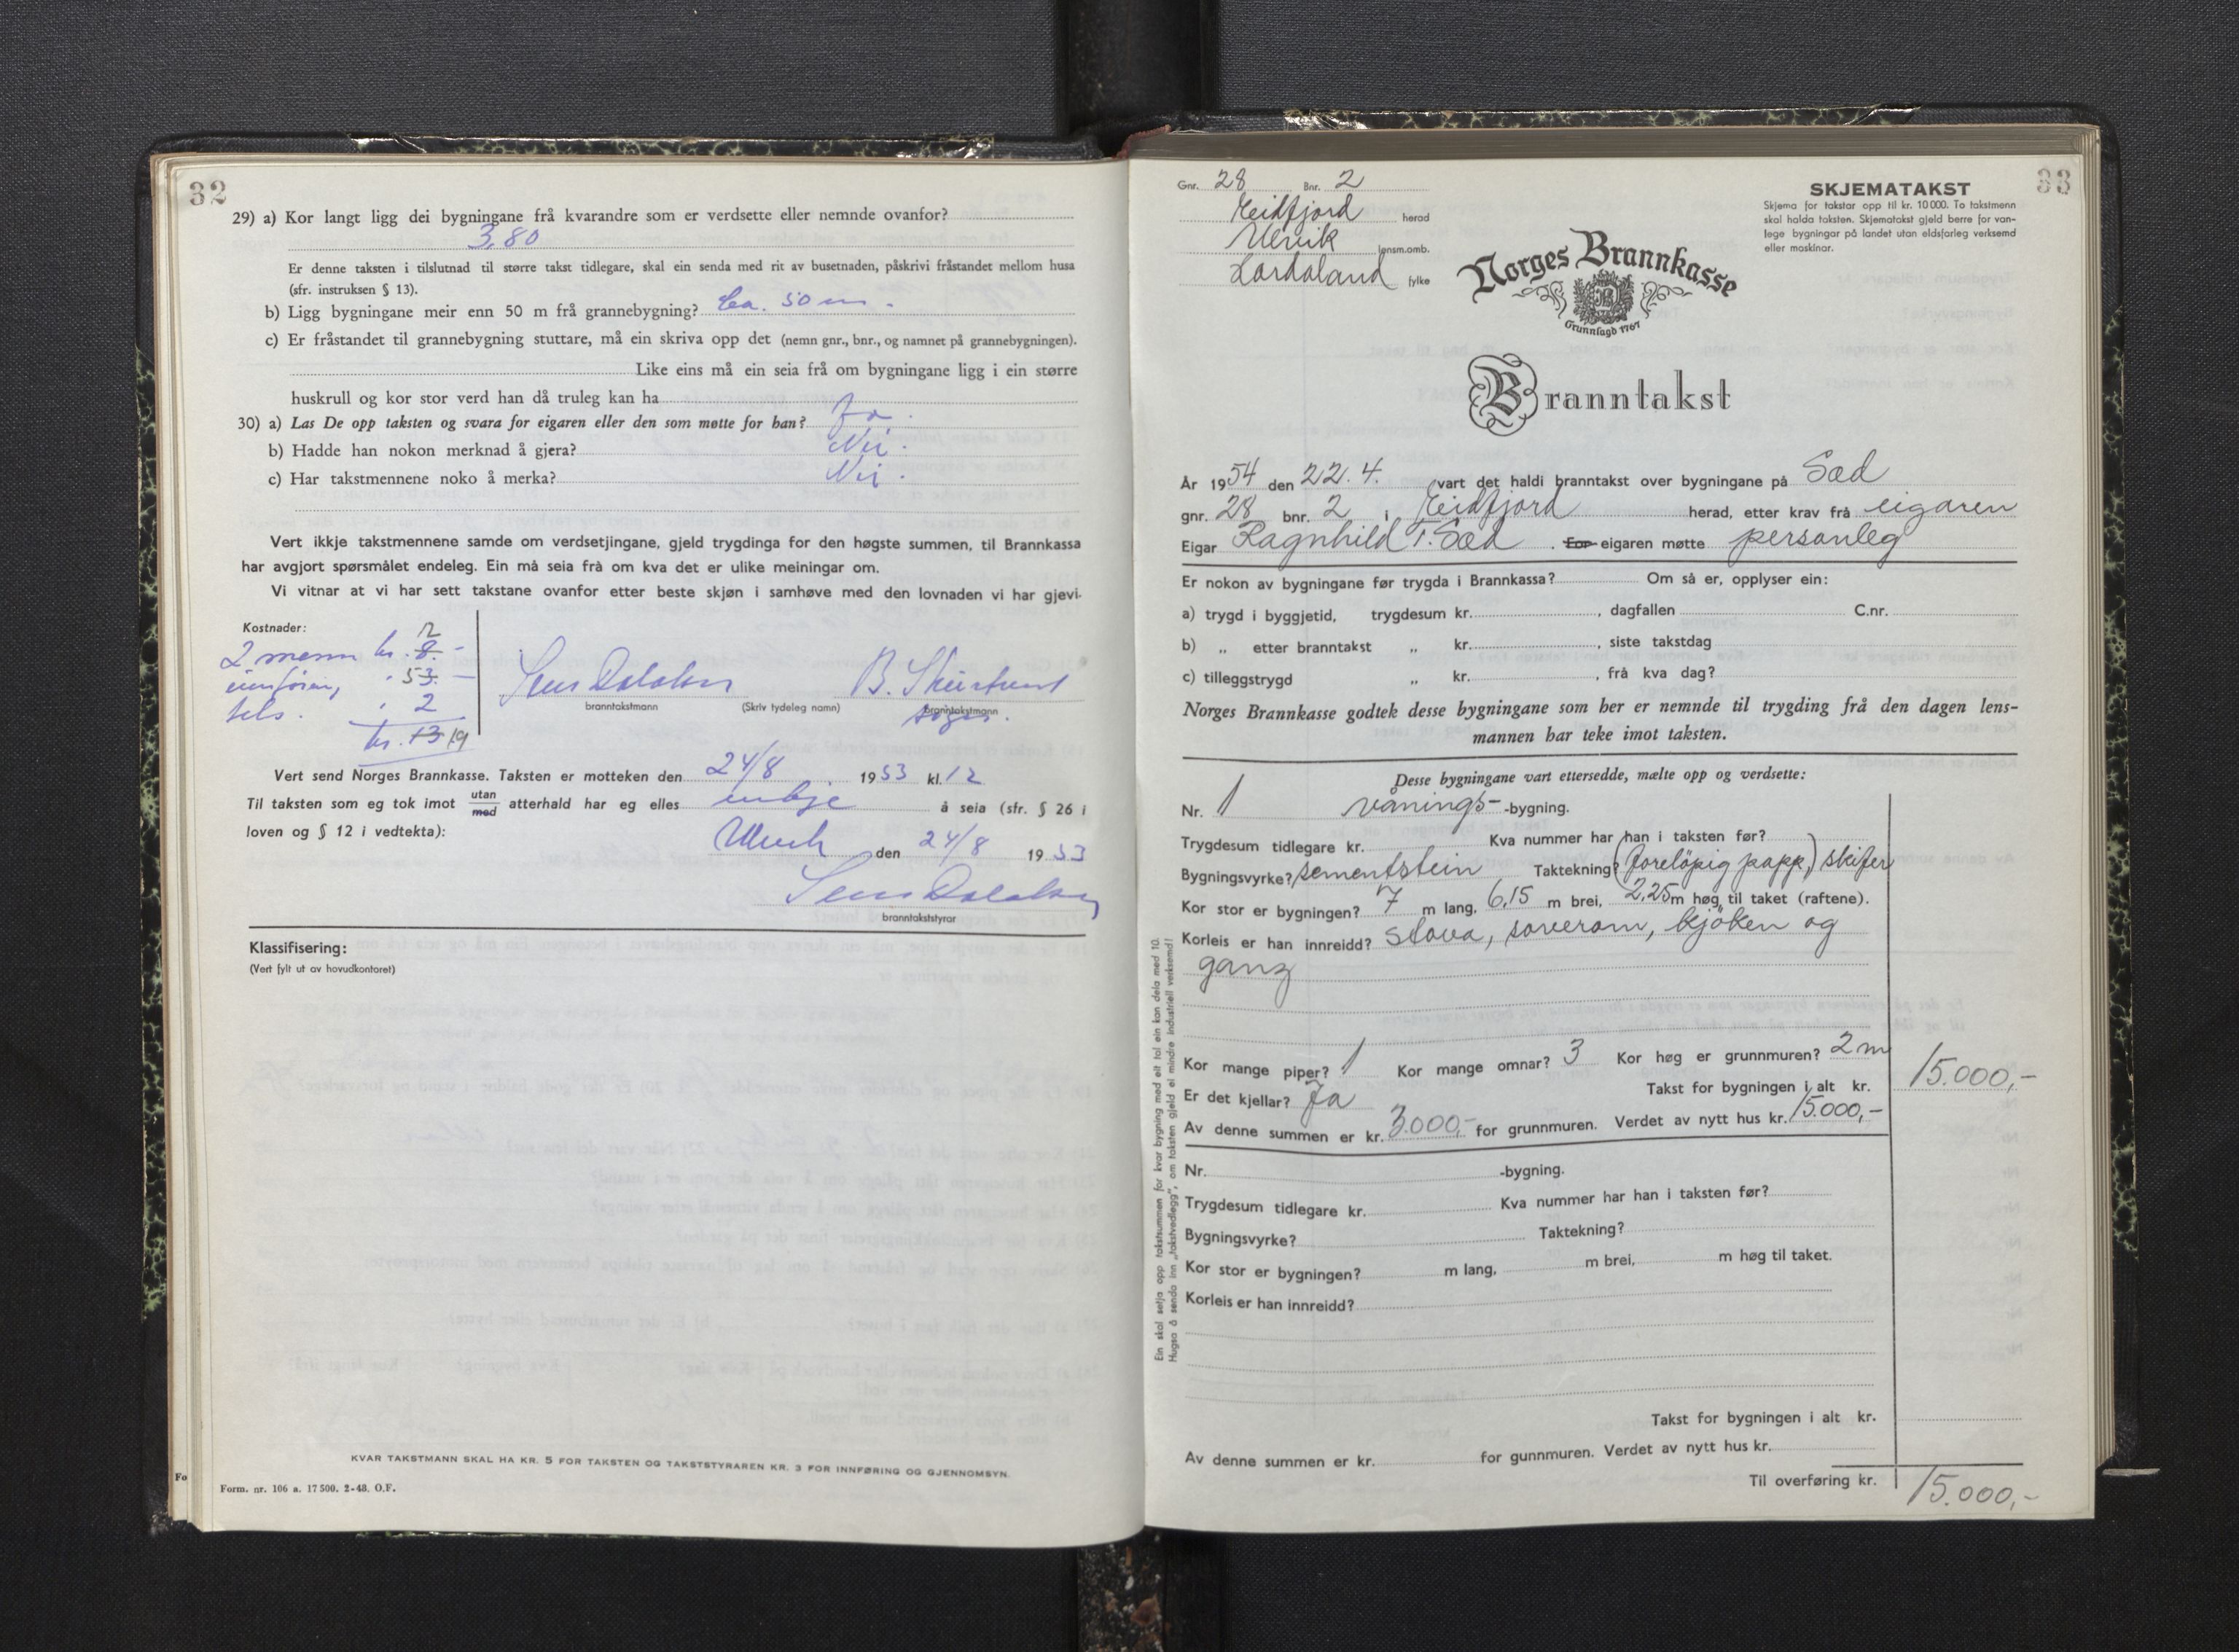 32
29) a) Kor langt ligg dei bygningane frå kvarandre som er verdsette eller nemnde ovanfor?
3,80
Er denne taksten i tilslutnad til større takst tidlegare, skal ein senda med rit av busetnaden, påskrivi fråstandet mellom husa
(sfr. instruksen § 13).
b) Ligg bygningane meir enn 50 m frå grannebygning? Ca. 50 m.
c) Er fråstandet til grannebygning stuttare, må ein skriva opp det (nemn gnr., bnr., og namnet på grannebygningen).
Like eins må ein seia frå om bygningane ligg i ein større
huskrull og kor stor verd han då truleg kan ha
30) a) Las De opp taksten og svara for eigaren eller den som møtte for han? Ja.
b) Hadde han nokon merknad å gjera? Nei.
c) Har takstmennene noko å merka? Nei.
Vert ikkje takstmennene samde om verdsetjingane, gjeld trygdinga for den høgste summen, til Brannkassa
har avgjort spørsmålet endeleg. Ein må seia frå om kva det er ulike meiningar om.
Vi vitnar at vi har sett takstane ovanfor etter beste skjøn i samhøve med den lovnaden vi har gjevi.
Kostnader:
12
2 menn kr. 8. -
53. -
" 2
kr. 13 19
branntakstmann (Skriv tydeleg namn) branntakstmann
Vert send Norges Brannkasse. Taksten er motteken den 24/8 1953 kl. 12
Til taksten som eg tok imot utan/med atterhald har eg elles inkje å seia (sfr. § 26 i
loven og § 12 i vedtekta):
Ulvik den 24/8 1953
branntakststyrar
Klassifisering:
(Vert fylt ut av hovudkontoret)
KVAR TAKSTMANN SKAL HA KR. 5 FOR TAKSTEN OG TAKSTSTYRAREN KR. 3 FOR INNFØRING OG GJENNOMSYN.
Form. nr. 106 a. 17500. 2-48. O.F.
Fo
33
Gnr. 28 Bnr. 2
Eidfjord herad
Ulvik lensm.omb.
Hordaland fylke
SKJEMATAKST
Skjema for takstar opp til kr. 10 000. To takstmenn
skal halda taksten. Skjematakst gjeld berre for van-
lege bygningar på landet utan eldsfarleg verksemd
eller maskinar.
Norges Brannkasse
Grunnlagd 1767
Branntakst
År 1954 den 22.4. vart det haldi branntakst over bygningane på Sæd
gnr. 28 bnr. 2 i Eidfjord herad, etter krav frå eigaren
Eigar Ragnhild T. Sæd. For eigaren møtte personleg
Er nokon av bygningane før trygda i Brannkassa? Om så er, opplyser ein:
a) trygd i byggjetid, trygdesum kr. , dagfallen C.nr.
b) „ etter branntakst „ kr. , siste takstdag
c) tilleggstrygd „ kr. , frå kva dag?
Norges Brannkasse godtek desse bygningane som her er nemnde til trygding frå den dagen lens-
mannen har teke imot taksten.
Desse bygningane vart ettersedde, mælte opp og verdsette:
Nr. 1 vånings- -bygning.
Trygdesum tidlegare kr. Kva nummer har han i taksten før?
Bygningsvyrke? sementstein Taktekning? (foreløpig papp,) skifer
Kor stor er bygningen? 7 m lang, 6,15 m brei, 2,25 m høg til taket (raftene).
Korleis er han innreidd? stova, soverom, kjøken og
gang
Kor mange piper? 1 Kor mange omnar? 3 Kor høg er grunnmuren? 2 m
Er det kjellar? Ja Takst for bygningen i alt kr. 15.000,-
Av denne summen er kr. 3.000,- for grunnmuren. Verdet av nytt hus kr. 15.000,-
Nr. -bygning.
Trygdesum tidlegare kr. Kva nummer har han i taksten før?
Bygningsvyrke? Taktekning?
Kor stor er bygningen? m lang, m brei, m høg til taket.
Korleis er han innreidd?
Takst for bygningen i alt kr.
Av denne summen er kr. for gunnmuren. Verdet av nytt hus kr.
Til overføring kr. 15.000,-
Ein skal setja opp takstsummen for kvar bygning med eit tal ein kan dela med 10.
Hugsa å senda inn „takstvedlegg", om taksten gjeld ei mindre industriell verksemd!